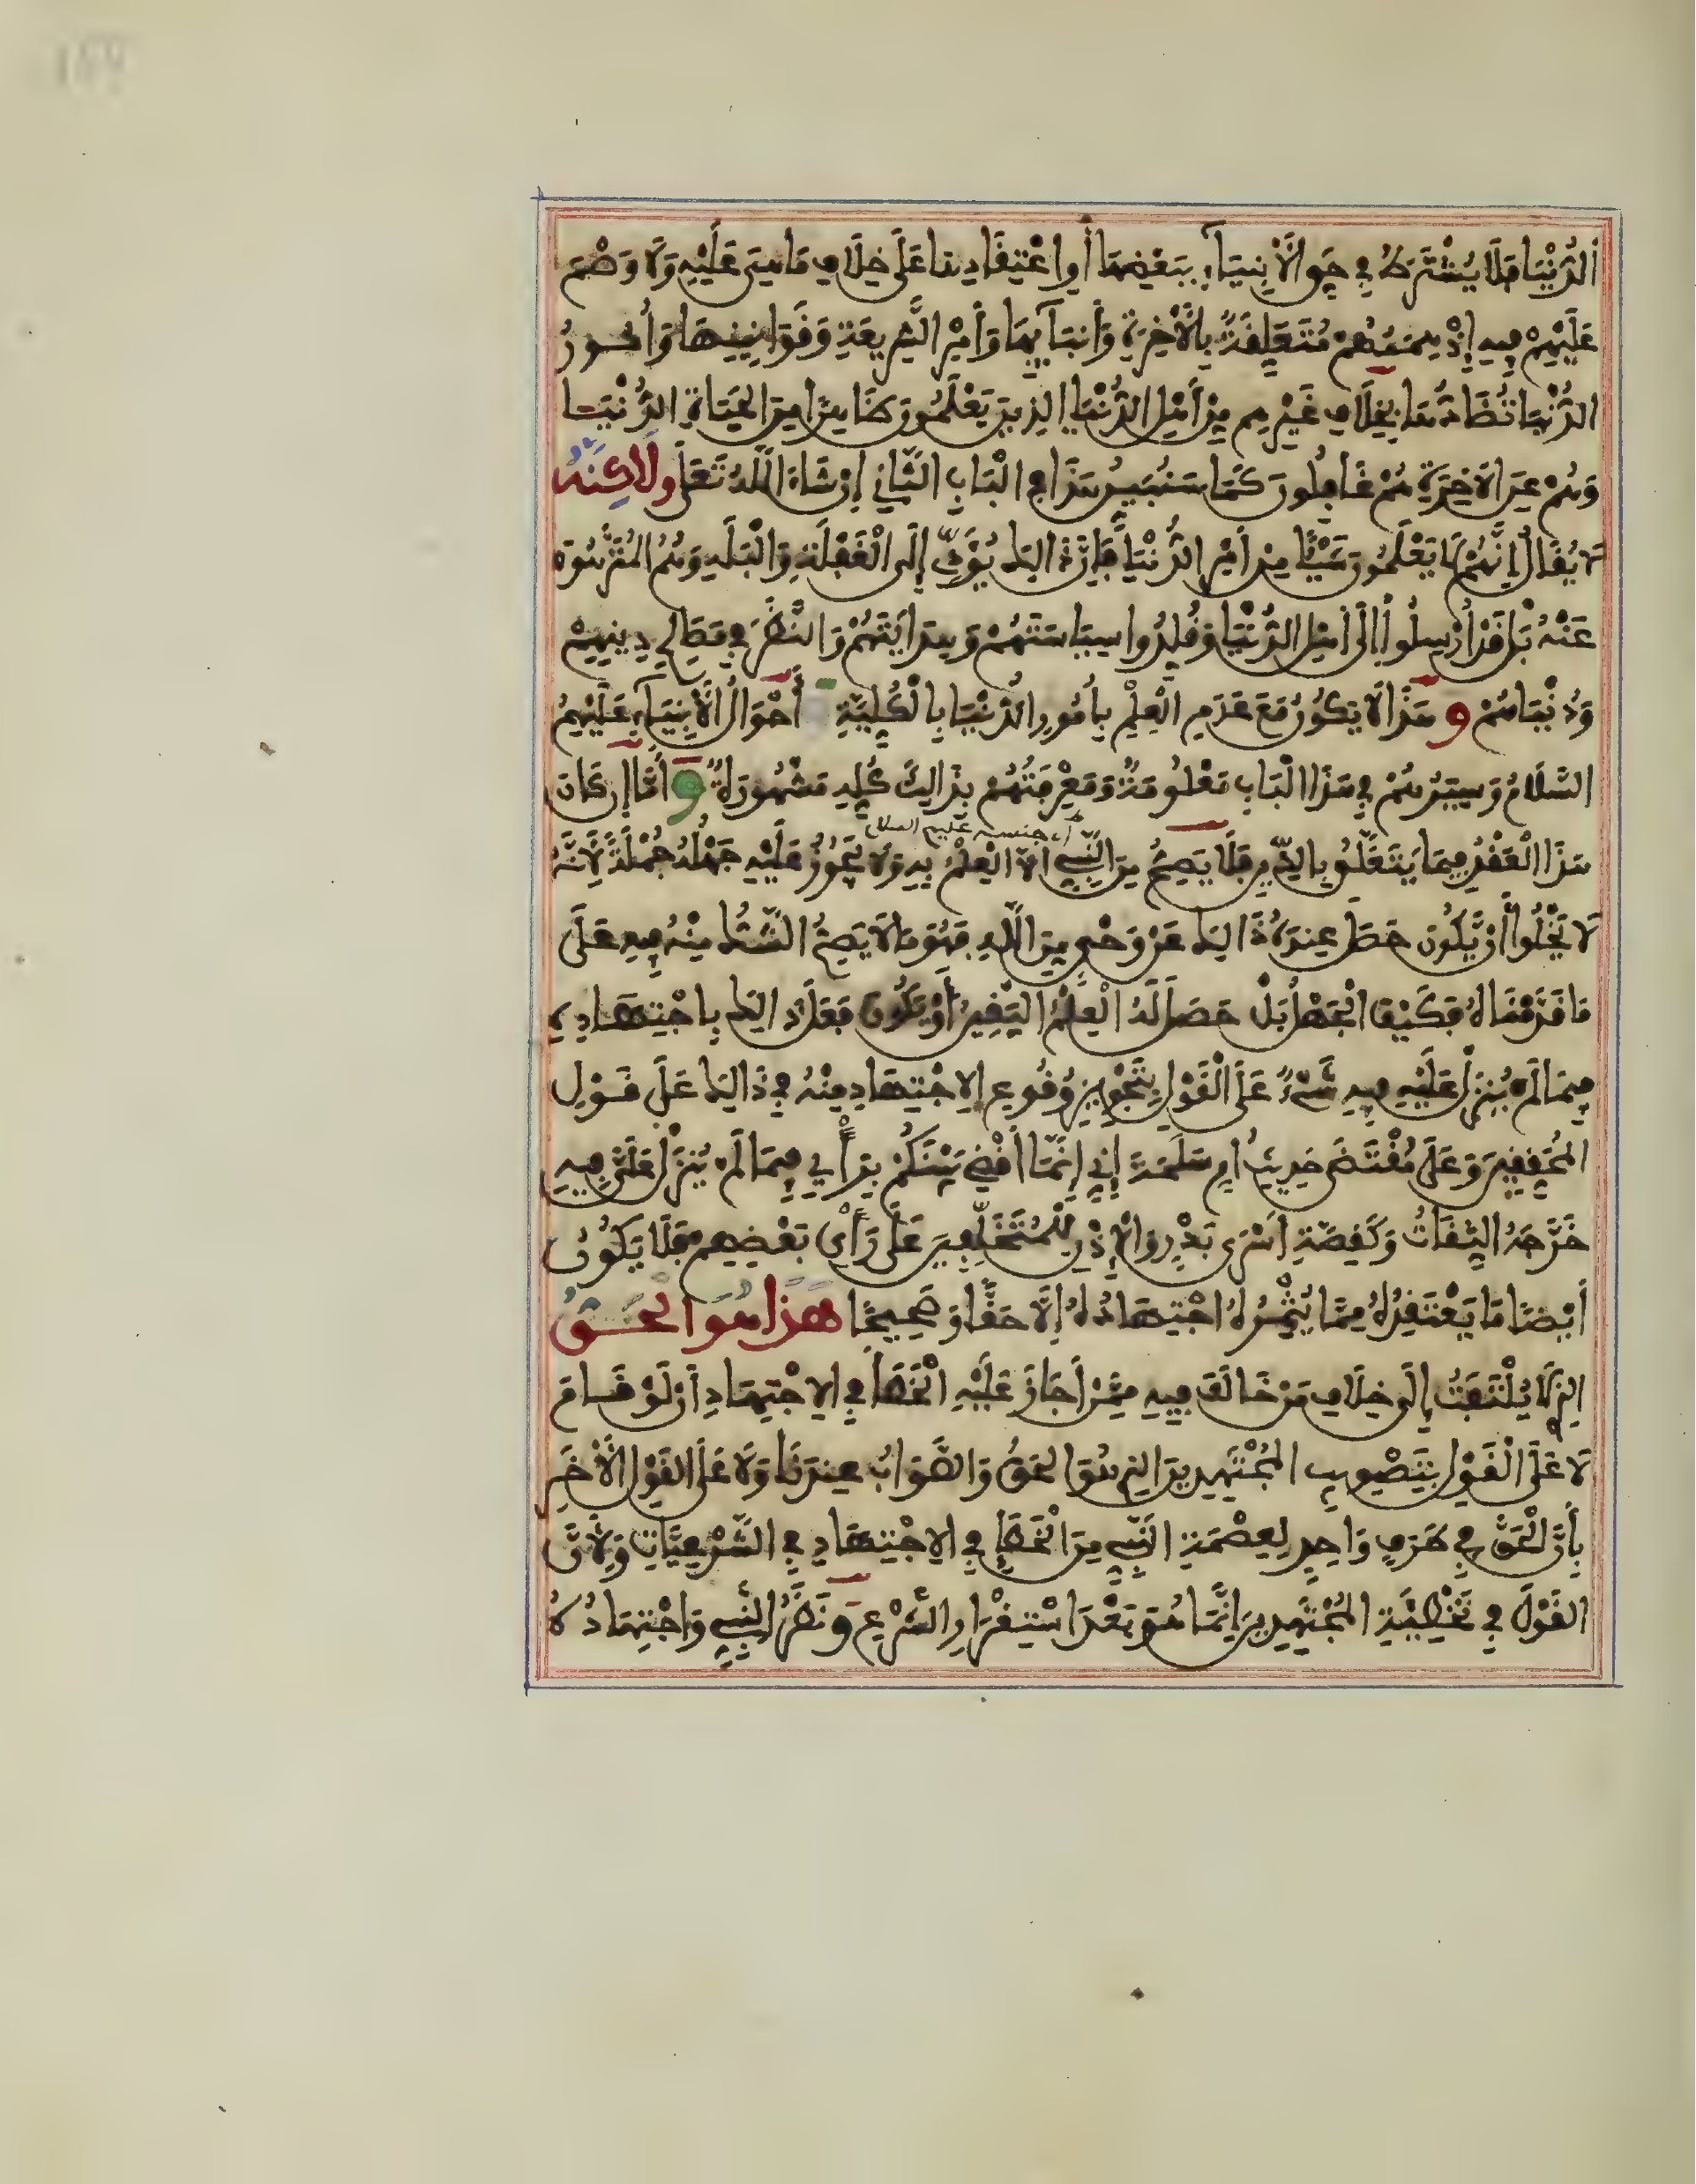 الدُّنْيَا فَلَا يُشْتَرَطُ فِي حَقِّ الْأَنْبِيَاءِ بِبَعْضِهَا أَوِ اعْتِقَادِهَا عَلَى خِلَافِ مَا هِيَ عَلَيْهِ وَلَا وَصْمَ
عَلَيْهِمْ فِيهِ إِذْ هِمَمُهُمْ مُتَعَلِّقَةٌ بِالْآخِرَةِ وَأَنْبَائِهَا وَأَمْرِ الشَّرِيعَةِ وَقَوَانِينِهَا وَأُمُورُ
الدُّنْيَا تُضَادُّهَا بِخِلَافِ غَيْرِهِمْ مِنْ أَهْلِ الدُّنْيَا الذِينَ يَعْلَمُونَ ظَاهِرًا مِنَ الْحَيَاةِ الدُّنْيَا
وَهُمْ عَنِ الْآخِرَةِ هُمْ غَافِلُونَ كَمَا سَنُبَيِّنُ هَذَا فِي الْبَابِ الثَّانِي إِنْ شَاءَ اللَّهُ تَعَلَى وَلَاكِنَّهُ
لَا يُقَالُ إِنَّهُمْ لَا يَعْلَمُونَ شَيْئًا مِنْ أَمْرِ الدُّنْيَا فَإِنَّ ذَالِكَ يُؤَدِّي إِلَى الْغَفْلَةِ وَالْبَلَهِ وَهُمُ الْمُنَزَّهُونَ
عَنْهُ بَلْ قَدْ أُرْسِلُوا إِلَى أَهْلِ الدُّنْيَا وَقُلِّدُوا سِيَاسَتَهُمْ وَهِدَايَتَهُمْ وَالنَّظَرَ فِي مَصَالِحِ دِينِهِمْ
وَدُنْيَاهُمْ وَهَذَا لَا يَكُونُ مَعَ عَدَمِ الْعِلْمِ بِأُمُورِ الدُّنْيَا بِالْكُلِّيَّةِ أَحْوَالُ الْأَنْبِيَاءِ عَلَيْهِمُ
السَّلَامُ وَسِيَرُهُمْ فِي هَذَا الْبَابِ مَعْلُومَةٌ وَمَعْرِفَتُهُمْ بِذَالِكَ كُلِّهِ مَشْهُورَةٌ وَأَمَّا إِنْ كَانَ
أي جنسه عليهم السلام
هَذَا الْعَقْدُ فِيمَا يَتَعَلَّقُ بِالدِّينِ فَلَا يَصِحُّ مِنَ النَّبِيِّ إِلَّا الْعِلْمُ بِهِ وَلَا يَجُوزُ عَلَيْهِ جَهْلُهُ جُمْلَةً لِأَنَّهُ
لَا يَخْلُوا أَنْ يَّكُونَ حَصَلَ عِنْدَهُ ذَالِكَ عَنْ وَحْيٍ مِنَ اللَّهِ فَهُوَ مَا لَا يَصِحُّ الشَّكُّ مِنْهُ فِيهِ عَلَى
مَا قَدَّمْنَاهُ فَكَيْفَ الْجَهْلُ بَلْ حَصَلَ لَهُ الْعِلْمُ الْيَقِينُ أَوْ يَكُونَ فَعَلَ ذَالِكَ بِاجْتِهَادِهِ
فِيمَا لَمْ يُنْزَلْ عَلَيْهِ فِيهِ شَيْءٌ عَلَى الْقَوْلِ بِتَجْوِيزِ وُقُوعِ الِاجْتِهَادِ مِنْهُ فِي ذَالِكَ عَلَى قَوْلِ
الْمُحَقِّقِينَ وَعَلَى مُقْتَضَى حَدِيثِ أُمِّ سَلَمَةَ إِنِّي إِنَّمَا أَقْضِي بَيْنَكُمْ بِرَأْيِي فِيمَا لَمْ يُنْزَلْ عَلَيَّ فِيهِ
خَرَّجَهُ الثِّقَاتُ وَكَقِصَّةِ أَسْرَى بَدْرٍ وَالْإِذْنِ لِلْمُتَخَلِّفِينَ عَلَى رَأْيِ بَعْضِهِمْ فَلَا يَكُونُ
أَيْضًا مَا يَعْتَقِدُهُ مِمَّا يُثْمِرُهُ اجْتِهَادُهُ إِلَّا حَقًّا وَصَحِيحًا هَذَا هُوَ الْحَقُّ
الذِي لَا يُلْتَفَتُ إِلَى خِلَافِ مَنْ خَالَفَ فِيهِ مِمَّنْ أَجَازَ عَلَيْهِ الْخَطَأَ فِي الِاجْتِهَادِ أَنْ لَوْ قَامَ
لَا عَلَى الْقَوْلِ بِتَصْوِيبِ الْمُجْتَهِدِينَ الذِي هُوَ الْحَقُّ وَالصَّوَابُ عِنْدَنَا وَلَا عَلَى الْقَوْلِ الْأَخَرِ
بِأَنَّ الْحَقَّ فِي طَرَفٍ وَاحِدٍ لِعِصْمَةِ النَّبِيِّ مِنَ الْخَطَإِ فِي الِاجْتِهَادِ فِي الشَّرْعِيَّاتِ وَلِأَنَّ
الْقَوْلَ فِي تَخْطِئَةِ الْمُجْتَهِدِينَ إِنَّمَا هُوَ بَعْدَ اسْتِقْرَارِ الشَّرْعِ وَنَظَرُ النَّبِيِّ وَاجْتِهَادُهُ